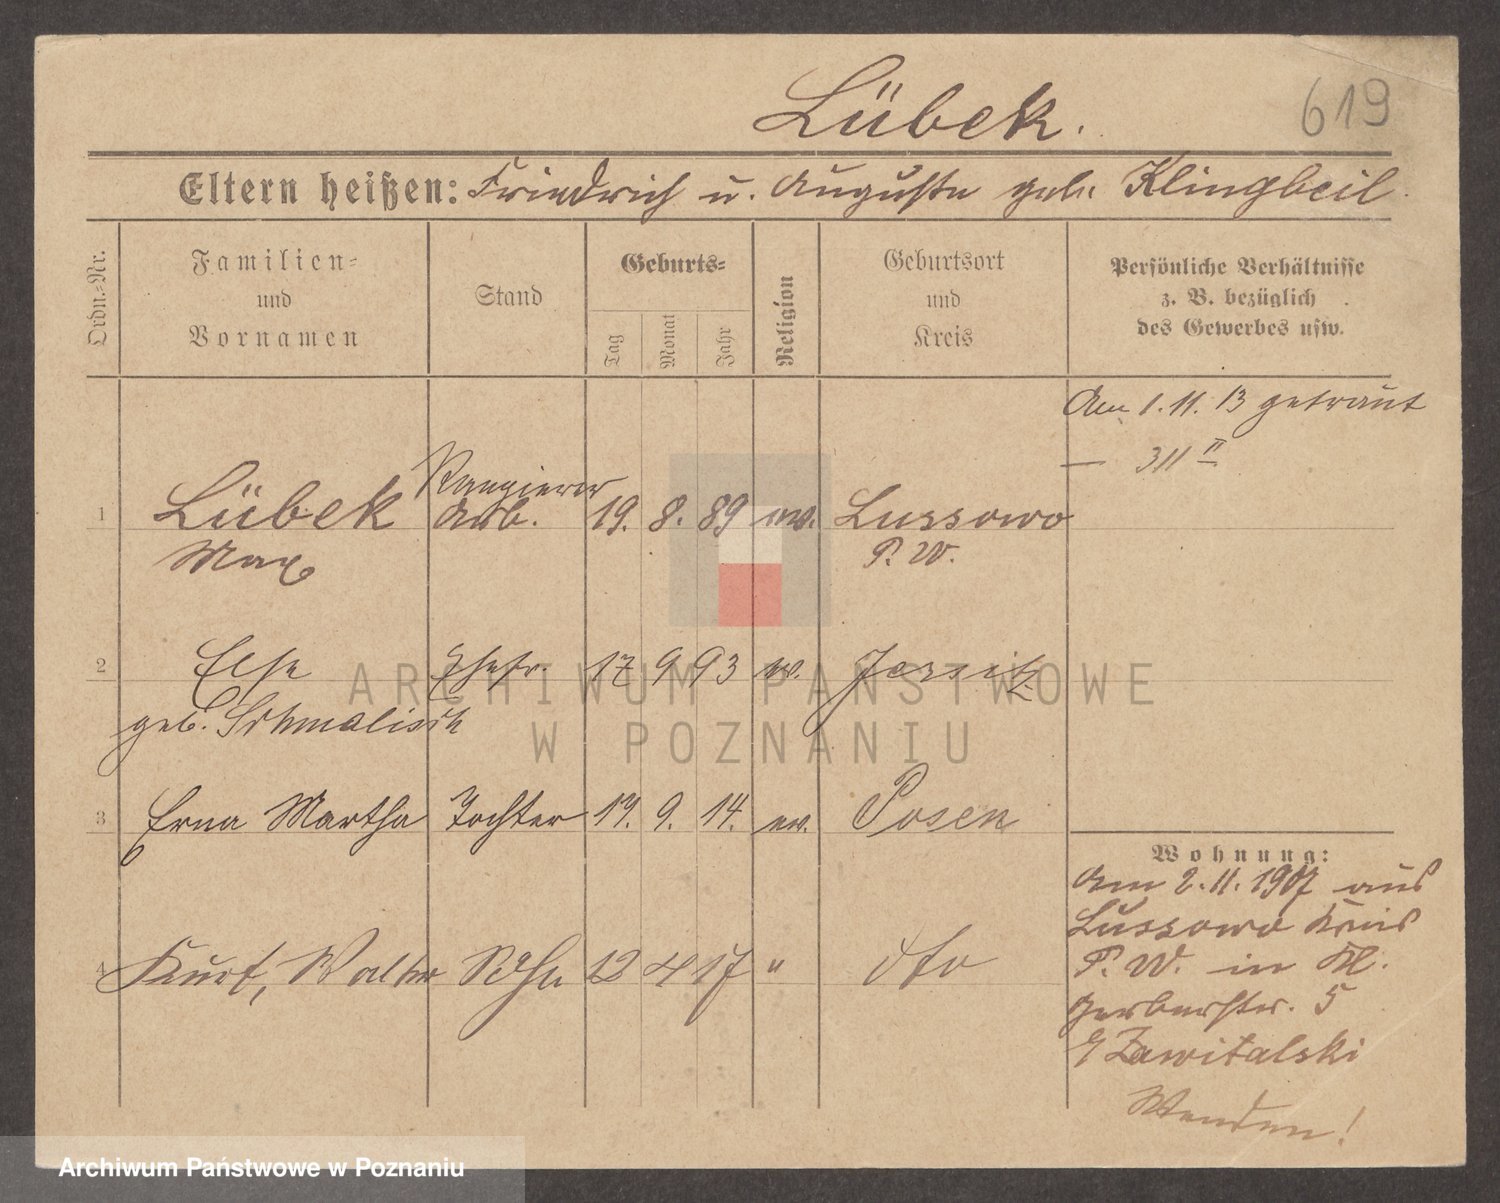 Lübek.
619
Eltern heißen: Friedrich u. Auguste geb. Klingbeil.
Ordn.=Nr.
Familien=
und
Vornamen
Stand
Geburts=
Tag
Monat
Jahr
Religion
Geburtsort
und
Kreis
Persönliche Verhältnisse
z. B. bezüglich
des Gewerbes usw.
Am 1.11.13 getraut
— 311 II
Rangierer
1 Lübek Arb. 19. 8. 89 ev. Lussowo
Max P. W.
2 Else Ehefr. 17 9 93 ev. Jersitz
geb. Schmalisch
3 Erna Martha Tochter 17. 9. 14. ev. Posen
4 Kurt, Walter Sohn 12 4 17 " dto
Wohnung:
Am 2.11.1907 aus
Lussowo Kreis
P. W. in Kl.
Gerberstr. 5
Zawitalski
Wenden!
ARCHIWUM PAŃSTWOWE
W POZNANIU
Archiwum Państwowe w Poznaniu